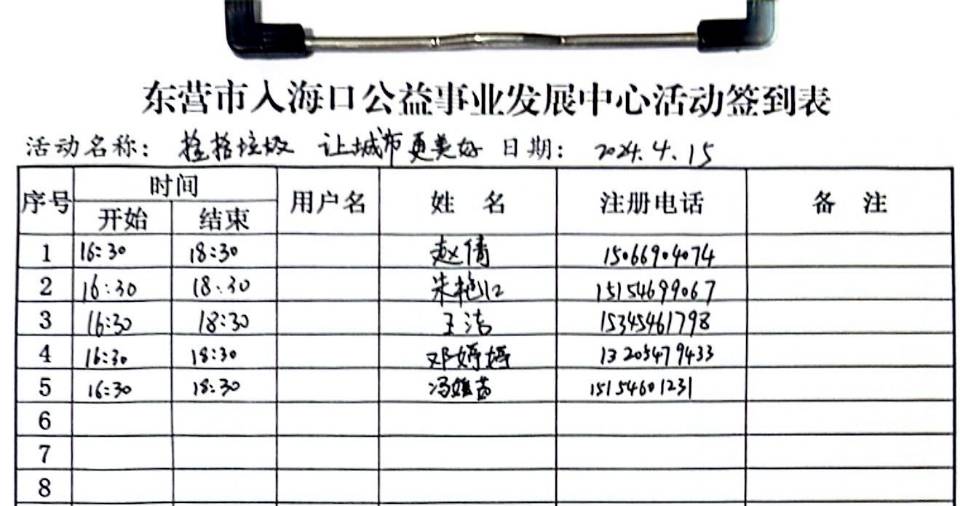 东营市入海口公益事业发展中心活动签到表
活动名称： 捡拾垃圾 让城市更美好 日期： 2024.4.15
序号 时间 用户名 姓 名 注册电话 备 注
开始 结束
1 16:30 18:30 赵倩 15066904074
2 16:30 18:30 朱艳 15154699067
3 16:30 18:30 王洁 15345461798
4 16:30 18:30 邓婷婷 13205479433
5 16:30 18:30 冯 15154601231
6
7
8